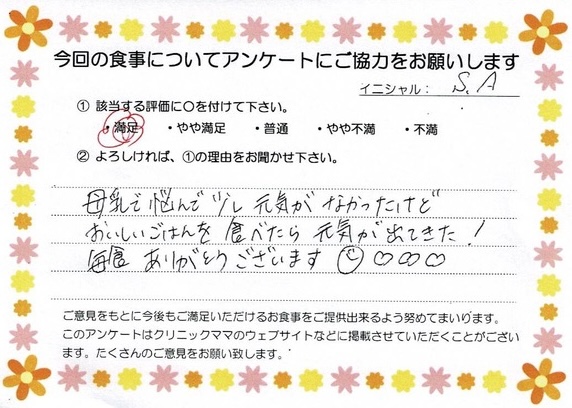 今回の食事についてアンケートにご協力をお願いします
イニシャル: S.A
① 該当する評価に○を付けて下さい。
・満足 ・やや満足 ・普通 ・やや不満 ・不満
② よろしければ、①の理由をお聞かせ下さい。
母乳で悩んで少し元気がなかったけど
おいしいごはんを食べたら元気が出てきた!
毎食ありがとうございます
ご意見をもとに今後もご満足いただけるお食事をご提供出来るよう努めてまいります。
このアンケートはクリニックママのウェブサイトなどに掲載させていただくことがござい
ます。たくさんのご意見をお願い致します。